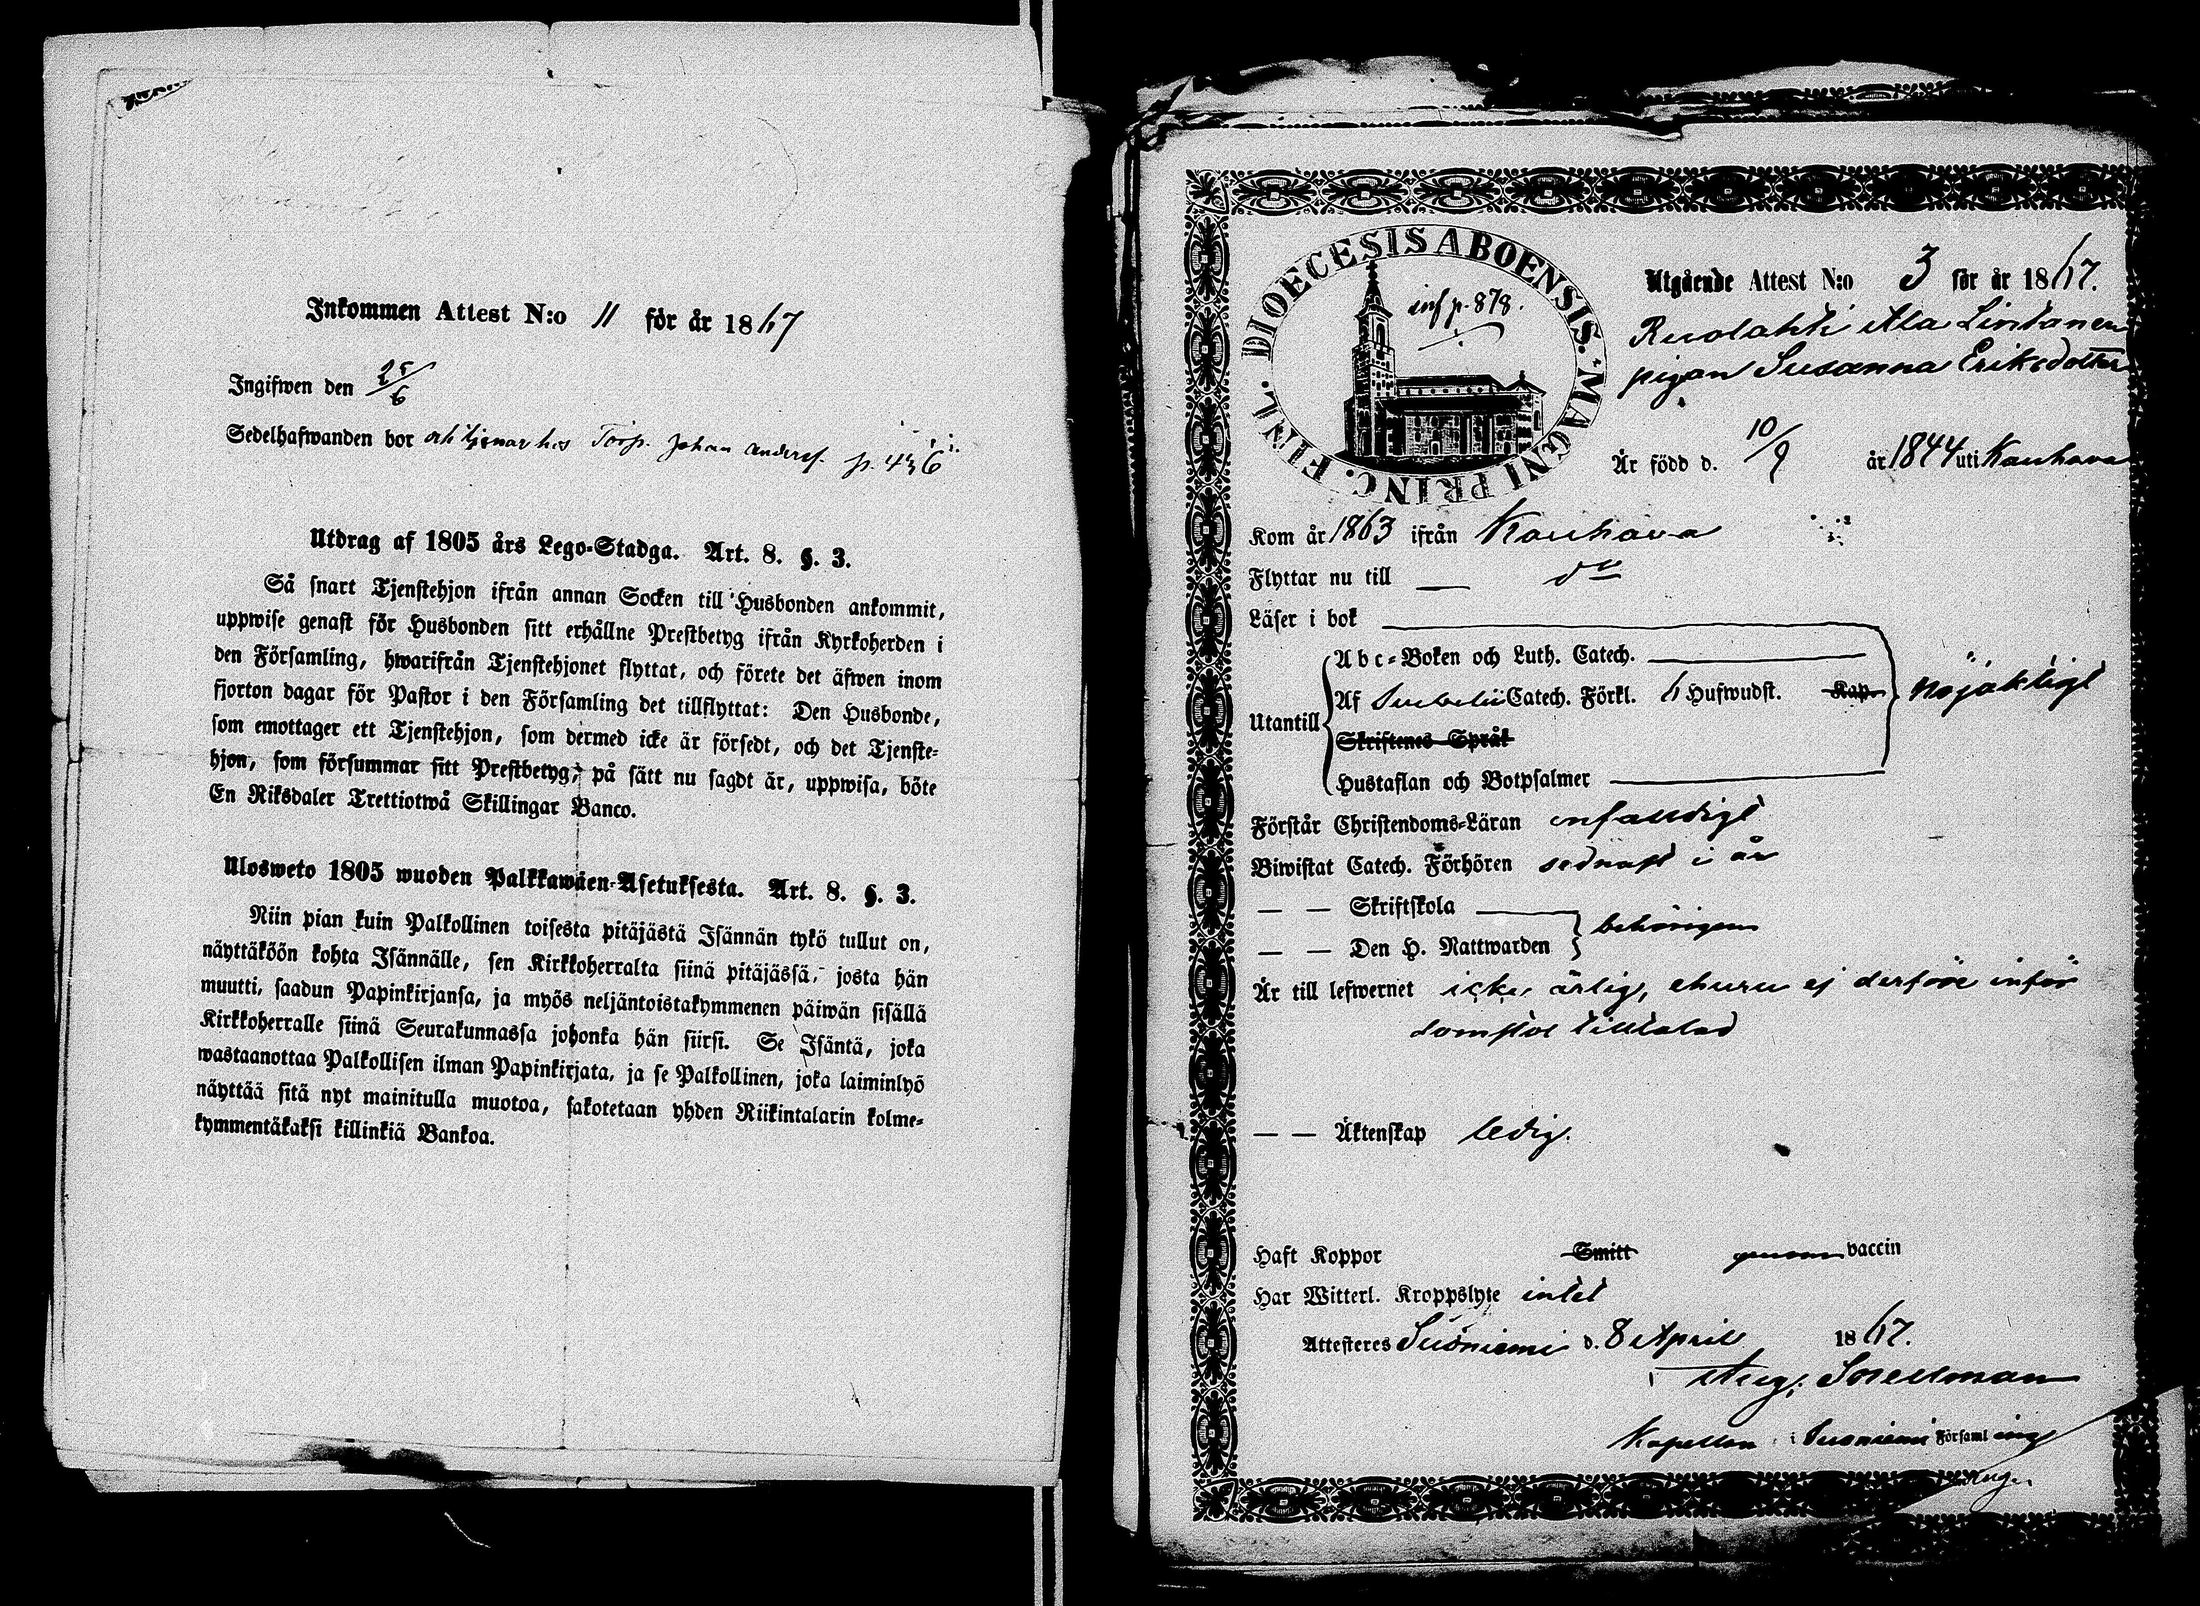 Inkommen Attest N:o 11 för år 1867
Ingifwen den 25/6
Sedelhafwanden bor och tjenar hos Torp. Johan Anderss. p. 436
Utdrag af 1805 års Lego-Stadga. Art. 8. §. 3.
Så snart Tjenstehjon ifrån annan Socken till Husbonden ankommit,
uppwise genast för Husbonden sitt erhållne Prestbetyg ifrån Kyrkoherden i
den Församling, hwarifrån Tjenstehjonet flyttat, och förete det äfwen inom
fjorton dagar för Pastor i den Församling det tillflyttat: Den Husbonde,
som emottager ett Tjenstehjon, som dermed icke är försedt, och det Tjenste-
hjon, som försummar sitt Prestbetyg, på sätt nu sagdt är, uppwisa, böte
En Riksdaler Trettiotwå Skillingar Banco.
Ulosweto 1805 wuoden Palkkawäen-Asetuksesta. Art. 8. §. 3.
Niin pian kuin Palkollinen toisesta pitäjästä Isännän tykö tullut on,
näyttäköön kohta Isännälle, sen Kirkkoherralta siinä pitäjässä, josta hän
muutti, saadun Papinkirjansa, ja myös neljäntoistakymmenen päiwän sisällä
Kirkkoherralle siinä Seurakunnassa johonka hän siirsi. Se Isäntä, joka
wastaanottaa Palkollisen ilman Papinkirjata, ja se Palkollinen, joka laiminlyö
näyttää sitä nyt mainitulla muotoa, sakotetaan yhden Riikintalarin kolme-
kymmentäkaksi killinkiä Bankoa.
DIOECESIS ABOENSIS. MAGNI PRINC. FINL.
inf p. 878.
Utgående Attest N:o 3 för år 1867.
Ruolahti Ala Lintanen
pigan Susanna Eriksdotter
Är född d. 10/9 år 1844 uti Kauhava
Kom år 1863 ifrån Kauhava
Flyttar nu till — do
Läser i bok
Abc-Boken och Luth. Catech.
Utantill Af Svebelii Catech. Förkl. 6 Hufwudst. Kap. nöjaktigt
Skriftenes Språk
Hustaflan och Botpsalmer
Förstår Christendoms-Läran enfaldigt
Biwistat Catech. Förhören sednast i år
— — Skriftskola
behörigen
— — Den H. Nattwarden
Är till lefwernet icke ärlig, ehuru ej derföre inför
domstol tilltalad
— — Äktenskap ledig.
Haft Koppor Smitt genom vaccin
Har Witterl. Kroppslyte intet
Attesteres Suoniemi d. 8 April 1867.
Aug. Snellman
Kapellan i Suoniemi Församling